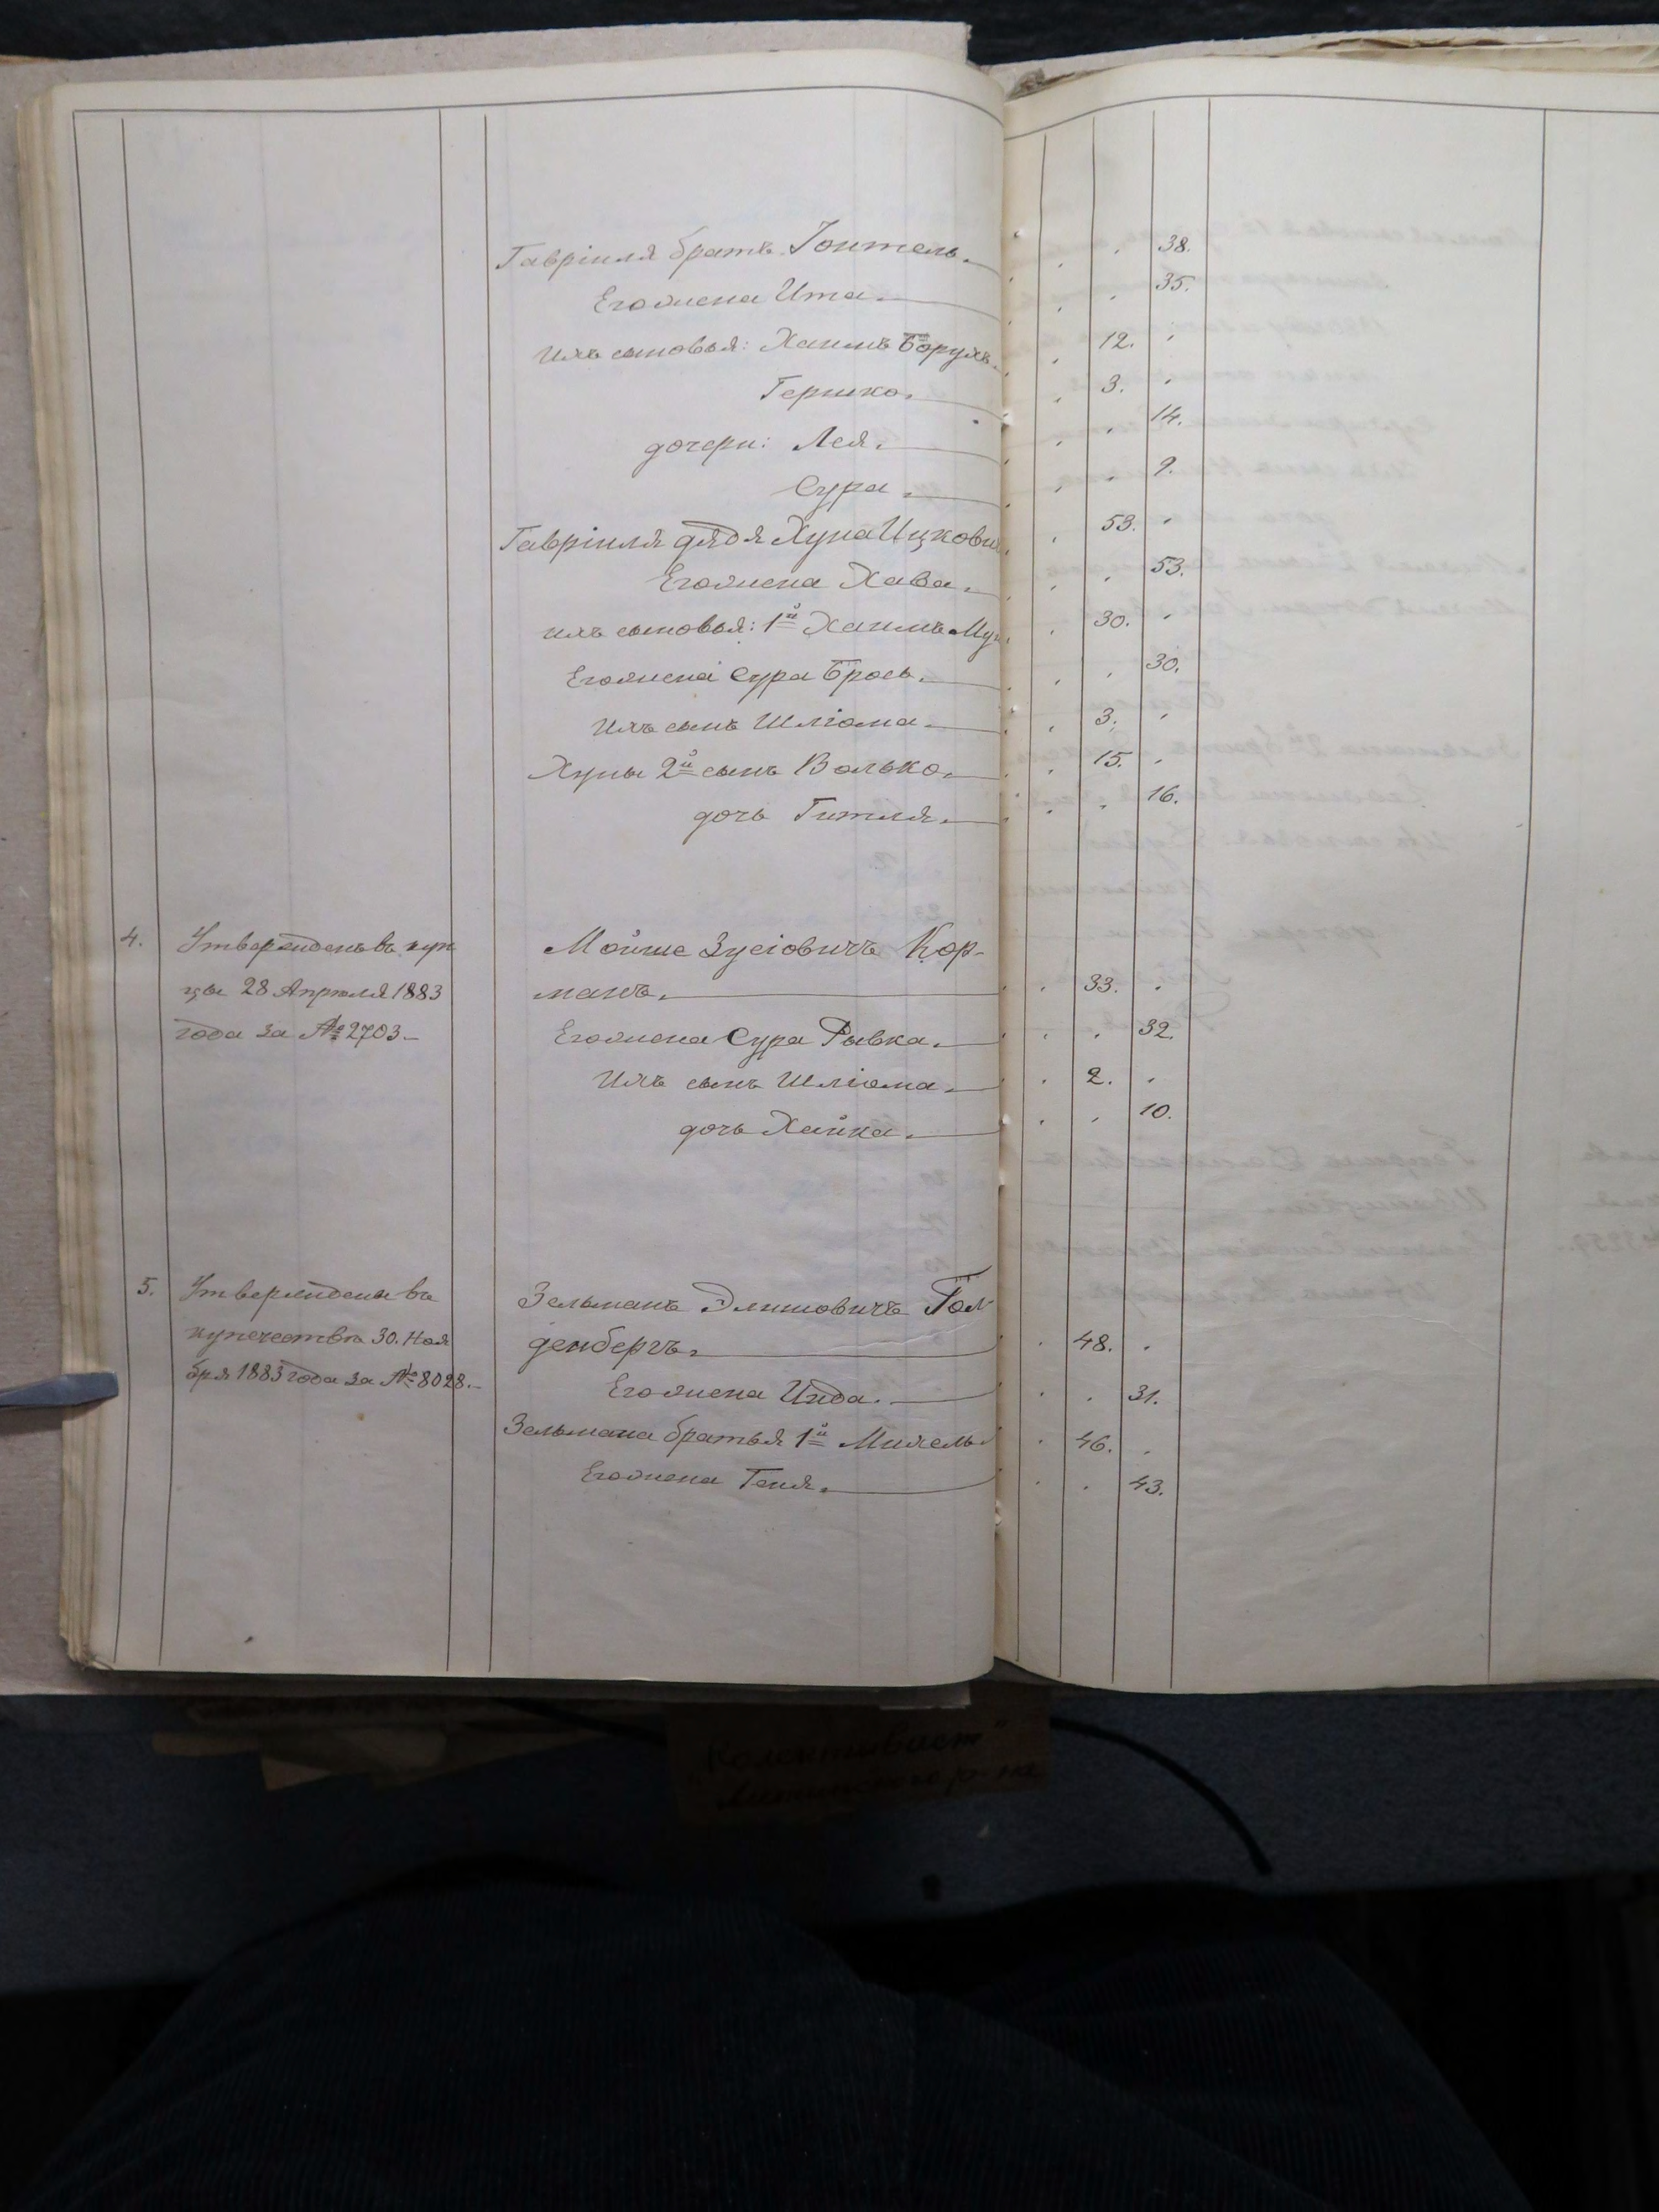 Гавріиля братъ Іонтель. 38.
Его жена Ита. 35.
Ихъ сыновья: Хаимъ Борухъ. 12.
Гершко. 3.
дочери: Лея. 14.
Сура. 9.
Гавріиля дядя Хуна Ицкович 53.
Его жена Хава. 53.
ихъ сыновья: 1й Хаимъ 30.
Его жена Сура Брось. 30.
Ихъ сынъ Шліома. 3.
Хуны 2й сынъ Волько. 15.
дочь Гитля. 16.
4. Утвержденъ въ куп
цы 28 Апреля 1883
года за № 2703.
Мойше Зусіовичъ Кор-
манъ. 33.
Его жена Сура Рывка. 32.
Ихъ сынъ Шліома. 2.
дочь Хайка. 10.
5. Утверждены въ
купечество 30. Ноя
бря 1883 года за № 8028.
Зельманъ Элиовичъ Гол
денбергъ. 48.
Его жена Инда. 31.
Зельмана братья 1й Михель 46.
Его жена Геня. 43.
"Колективист"